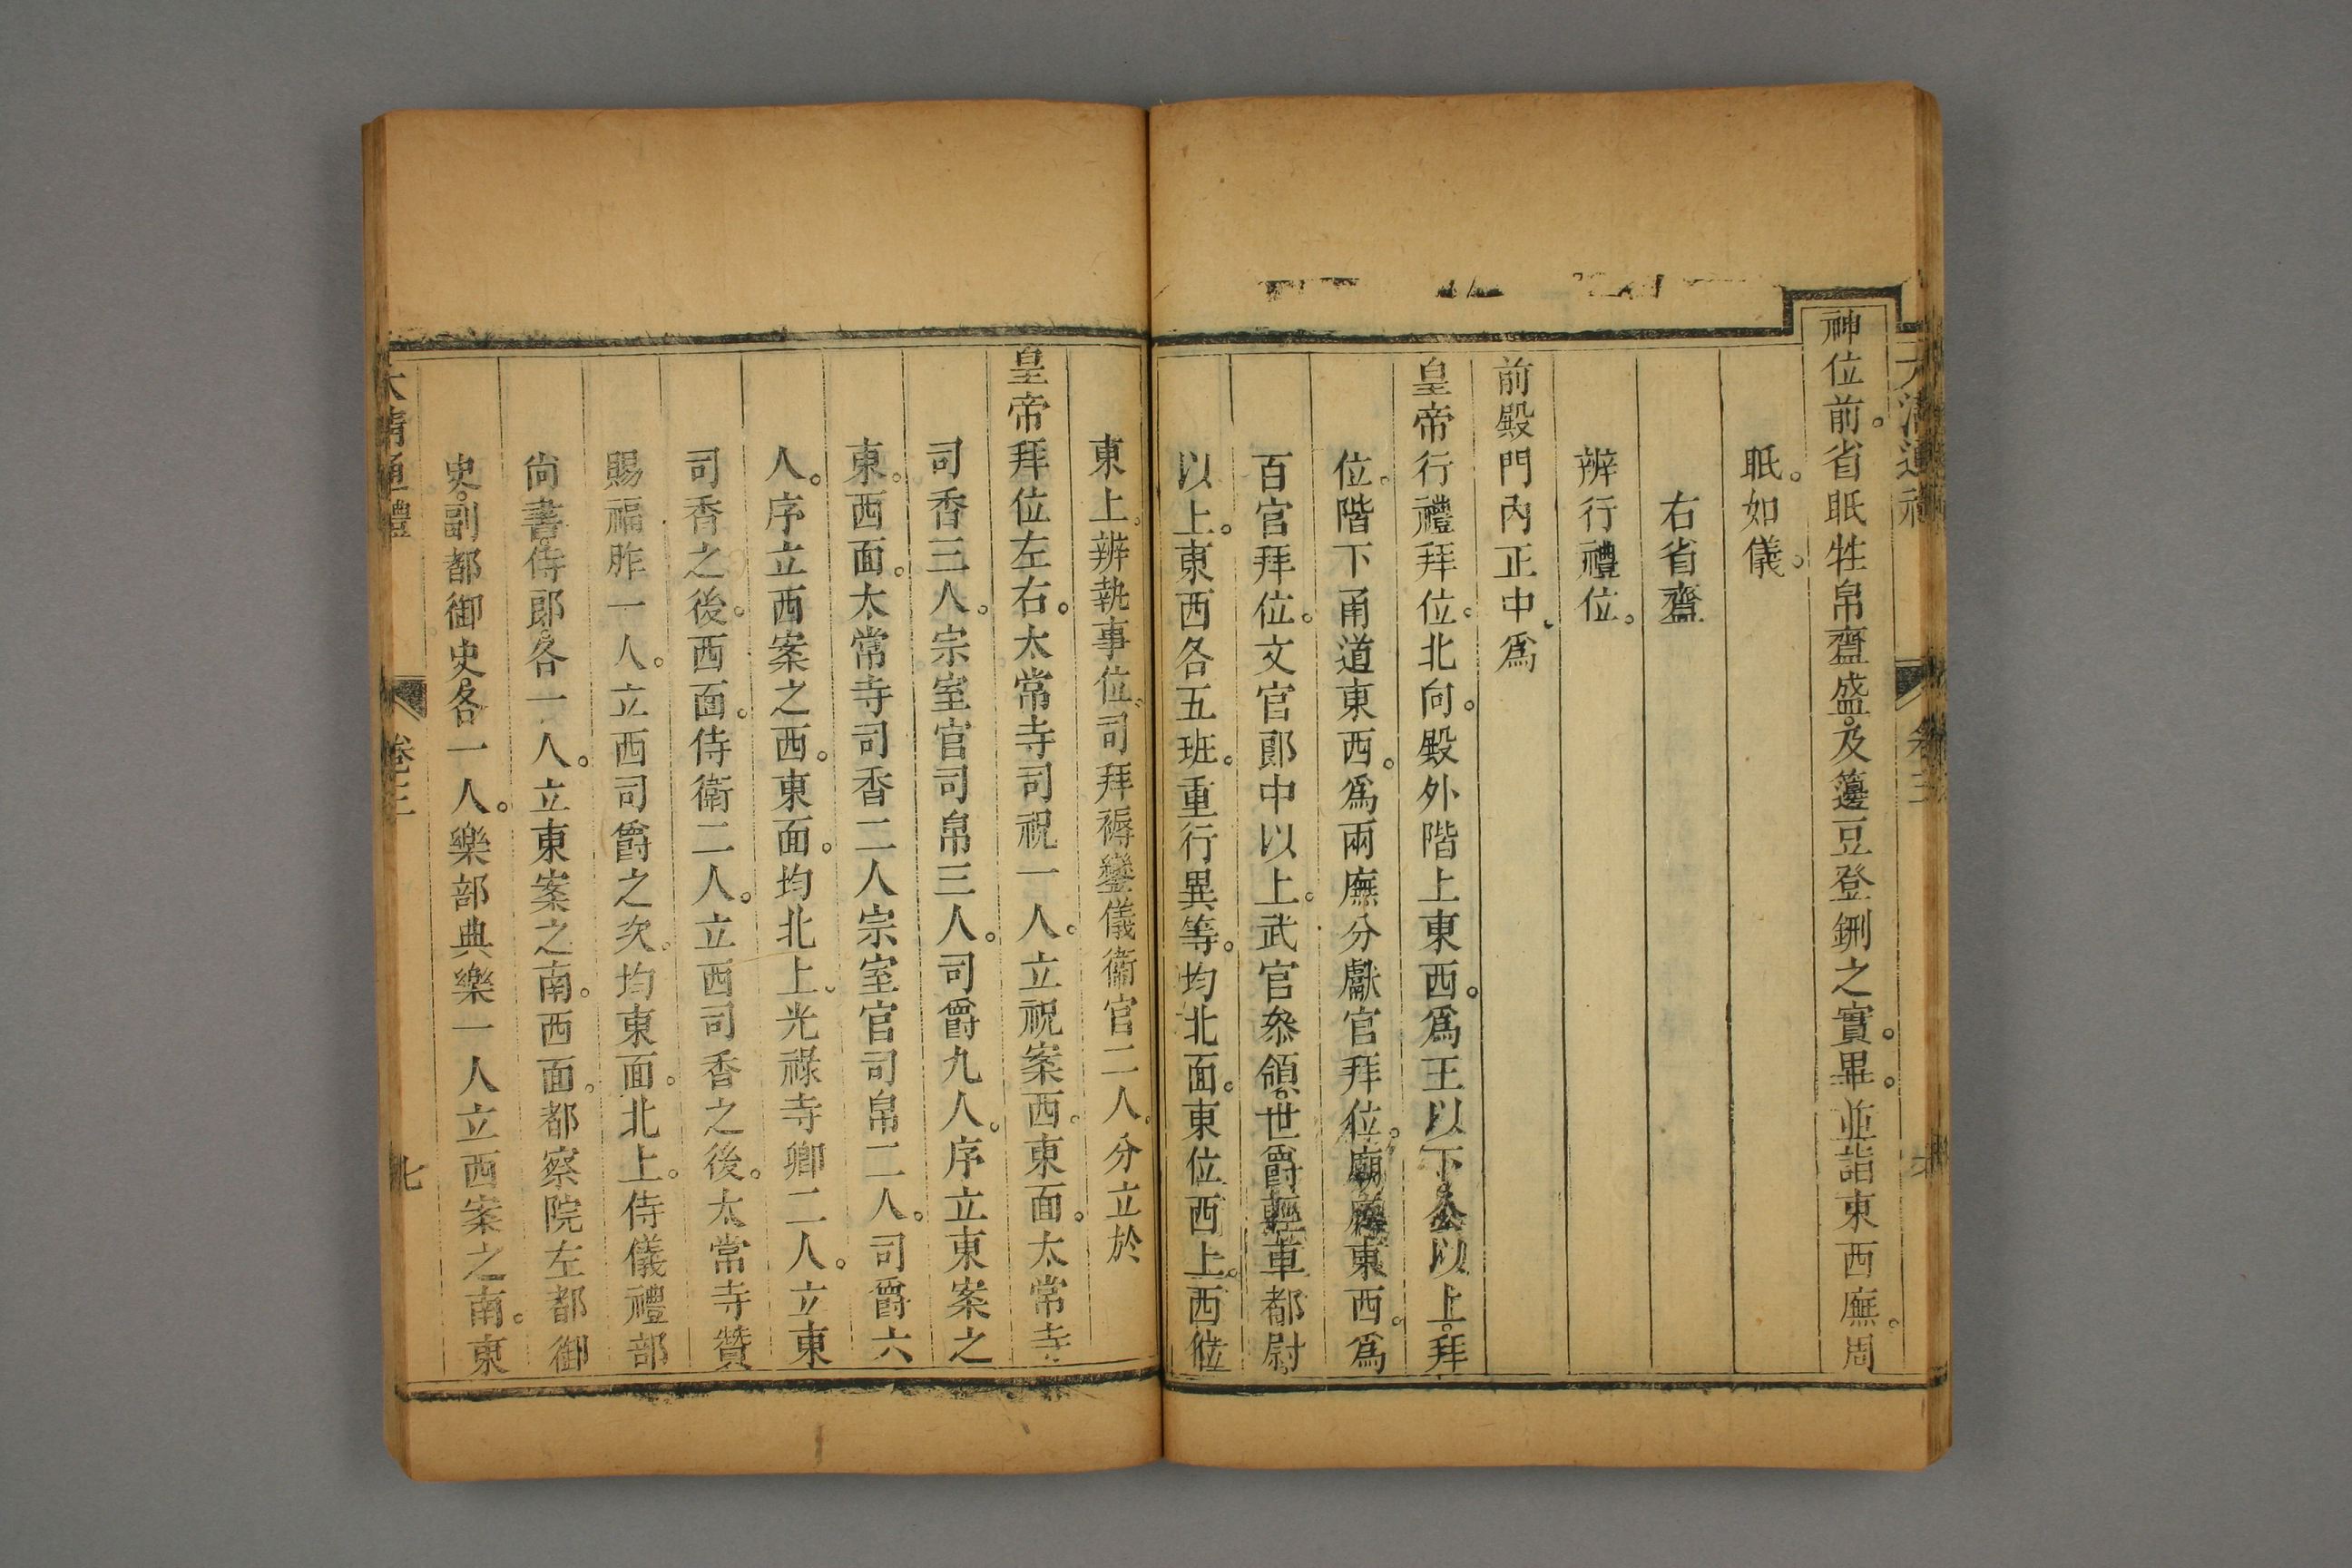 神位前。省眂牲帛齍盛。及籩豆登鉶之實。畢。並詣東西廡。周
眂。如儀。
右省齍
辨行禮位。
前殿門內正中、爲
皇帝行禮拜位。北向。殿外階上東西。爲王以下。公以上。拜
位。階下甬道東西。爲兩廡分獻官拜位。廟庭東西。爲
百官拜位。文官郎中以上。武官叅領。世爵輕車都尉
以上。東西各五班。重行異等。均北面。東位西上。西位
東上。辨執事位。司拜褥鑾儀衞官二人。分立於
皇帝拜位左右。太常寺司祝一人。立祝案西。東面。太常寺
司香三人。宗室官司帛三人。司爵九人。序立東案之
東。西面。太常寺司香二人宗室官司帛二人。司爵六
人。序立西案之西。東面。均北上、光祿寺卿二人。立東
司香之後。西面。侍衞二人。立西司香之後。太常寺贊
賜福胙一人。立西司爵之次。均東面。北上。侍儀禮部
尙書。侍郎。各一人。立東案之南。西面。都察院左都御
史。副都御史。各一人。樂部典樂一人立西案之南。東
大清通禮 卷三 七